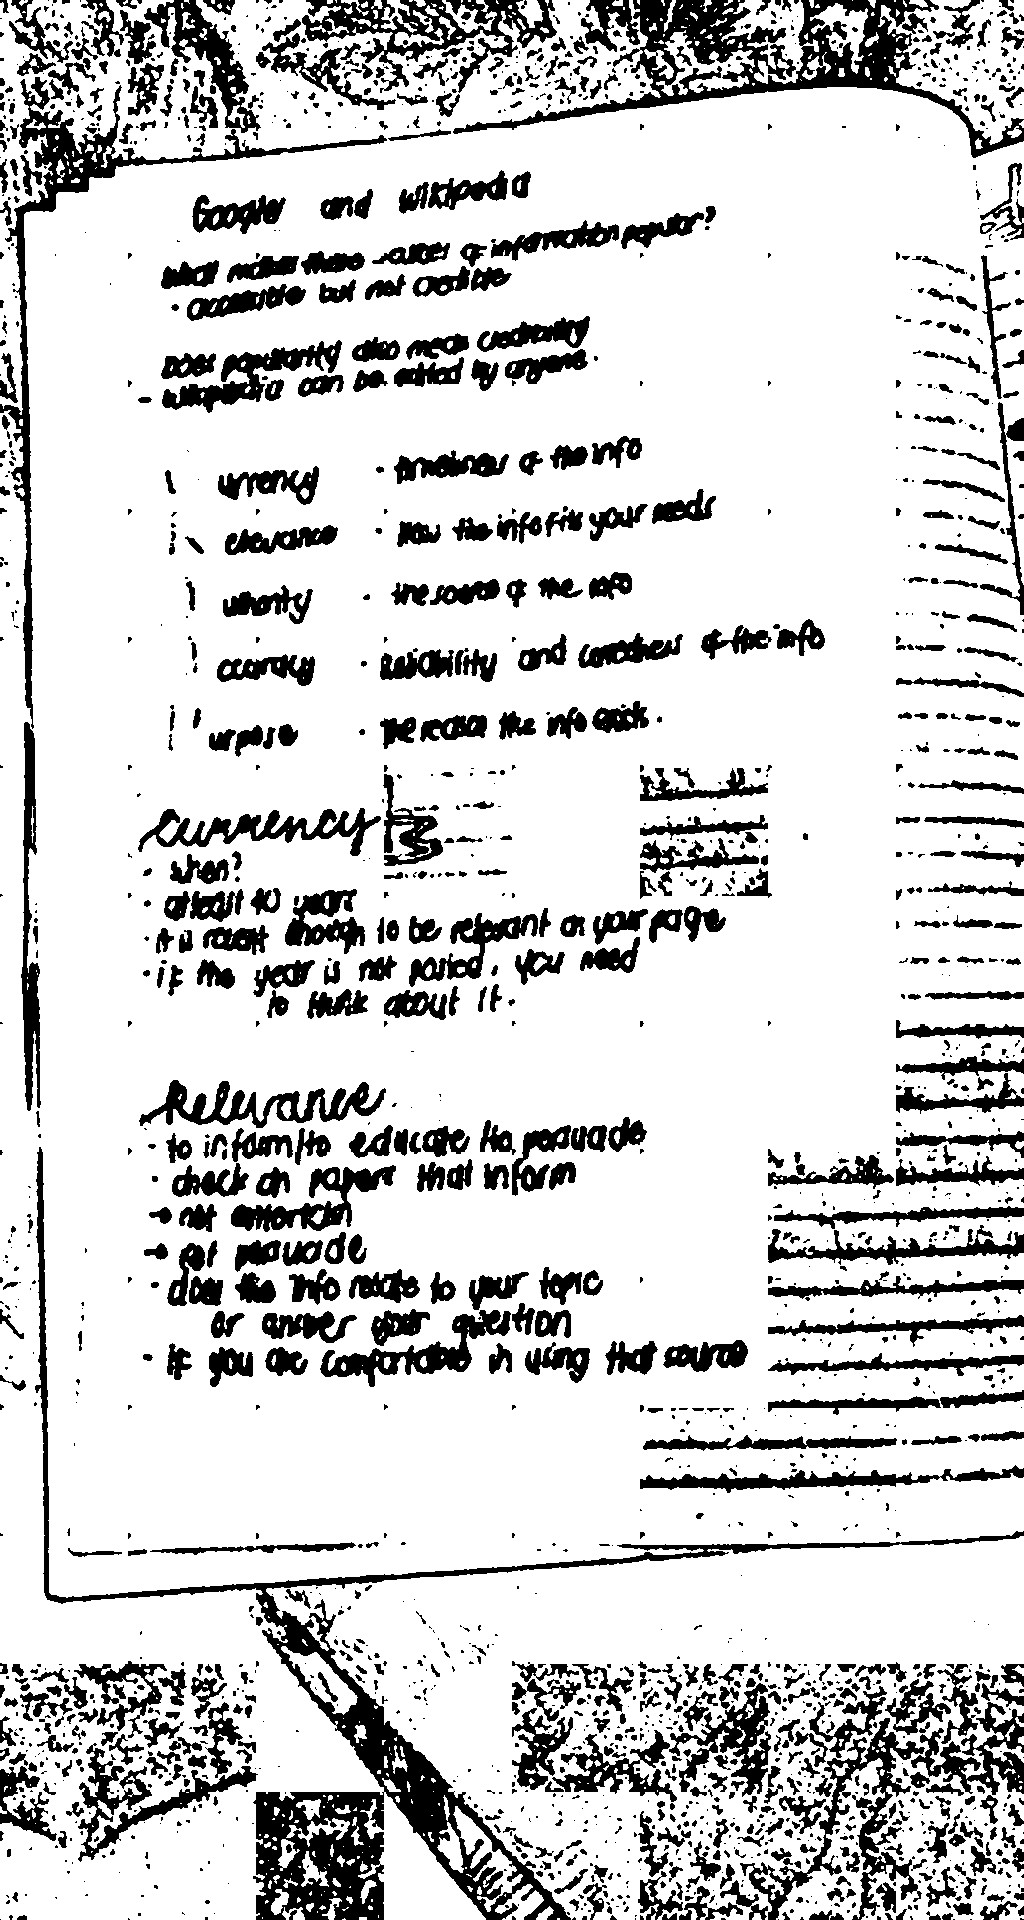 Google and Wikipedia
What makes these sources of information popular?
· accessible but not credible
Does popularity also mean credibility
- Wikipedia can be edited by anyone.
urrency · timeliness of the info
elevance · How the info fits your needs
uthority · the source of the info
ccuracy · Reliability and correctness of the info
urpose · The reason the info exists.
Currency
· when?
· atleast 10 years
· it is recent enough to be relevant on your page
· if the year is not posted, you need
to think about it.
Relevance
· to inform/to educate/to persuade
· check on papers that inform
→ not entertain
→ not persuade
· does the info relate to your topic
or answer your question
· if you are comfortable in using that source